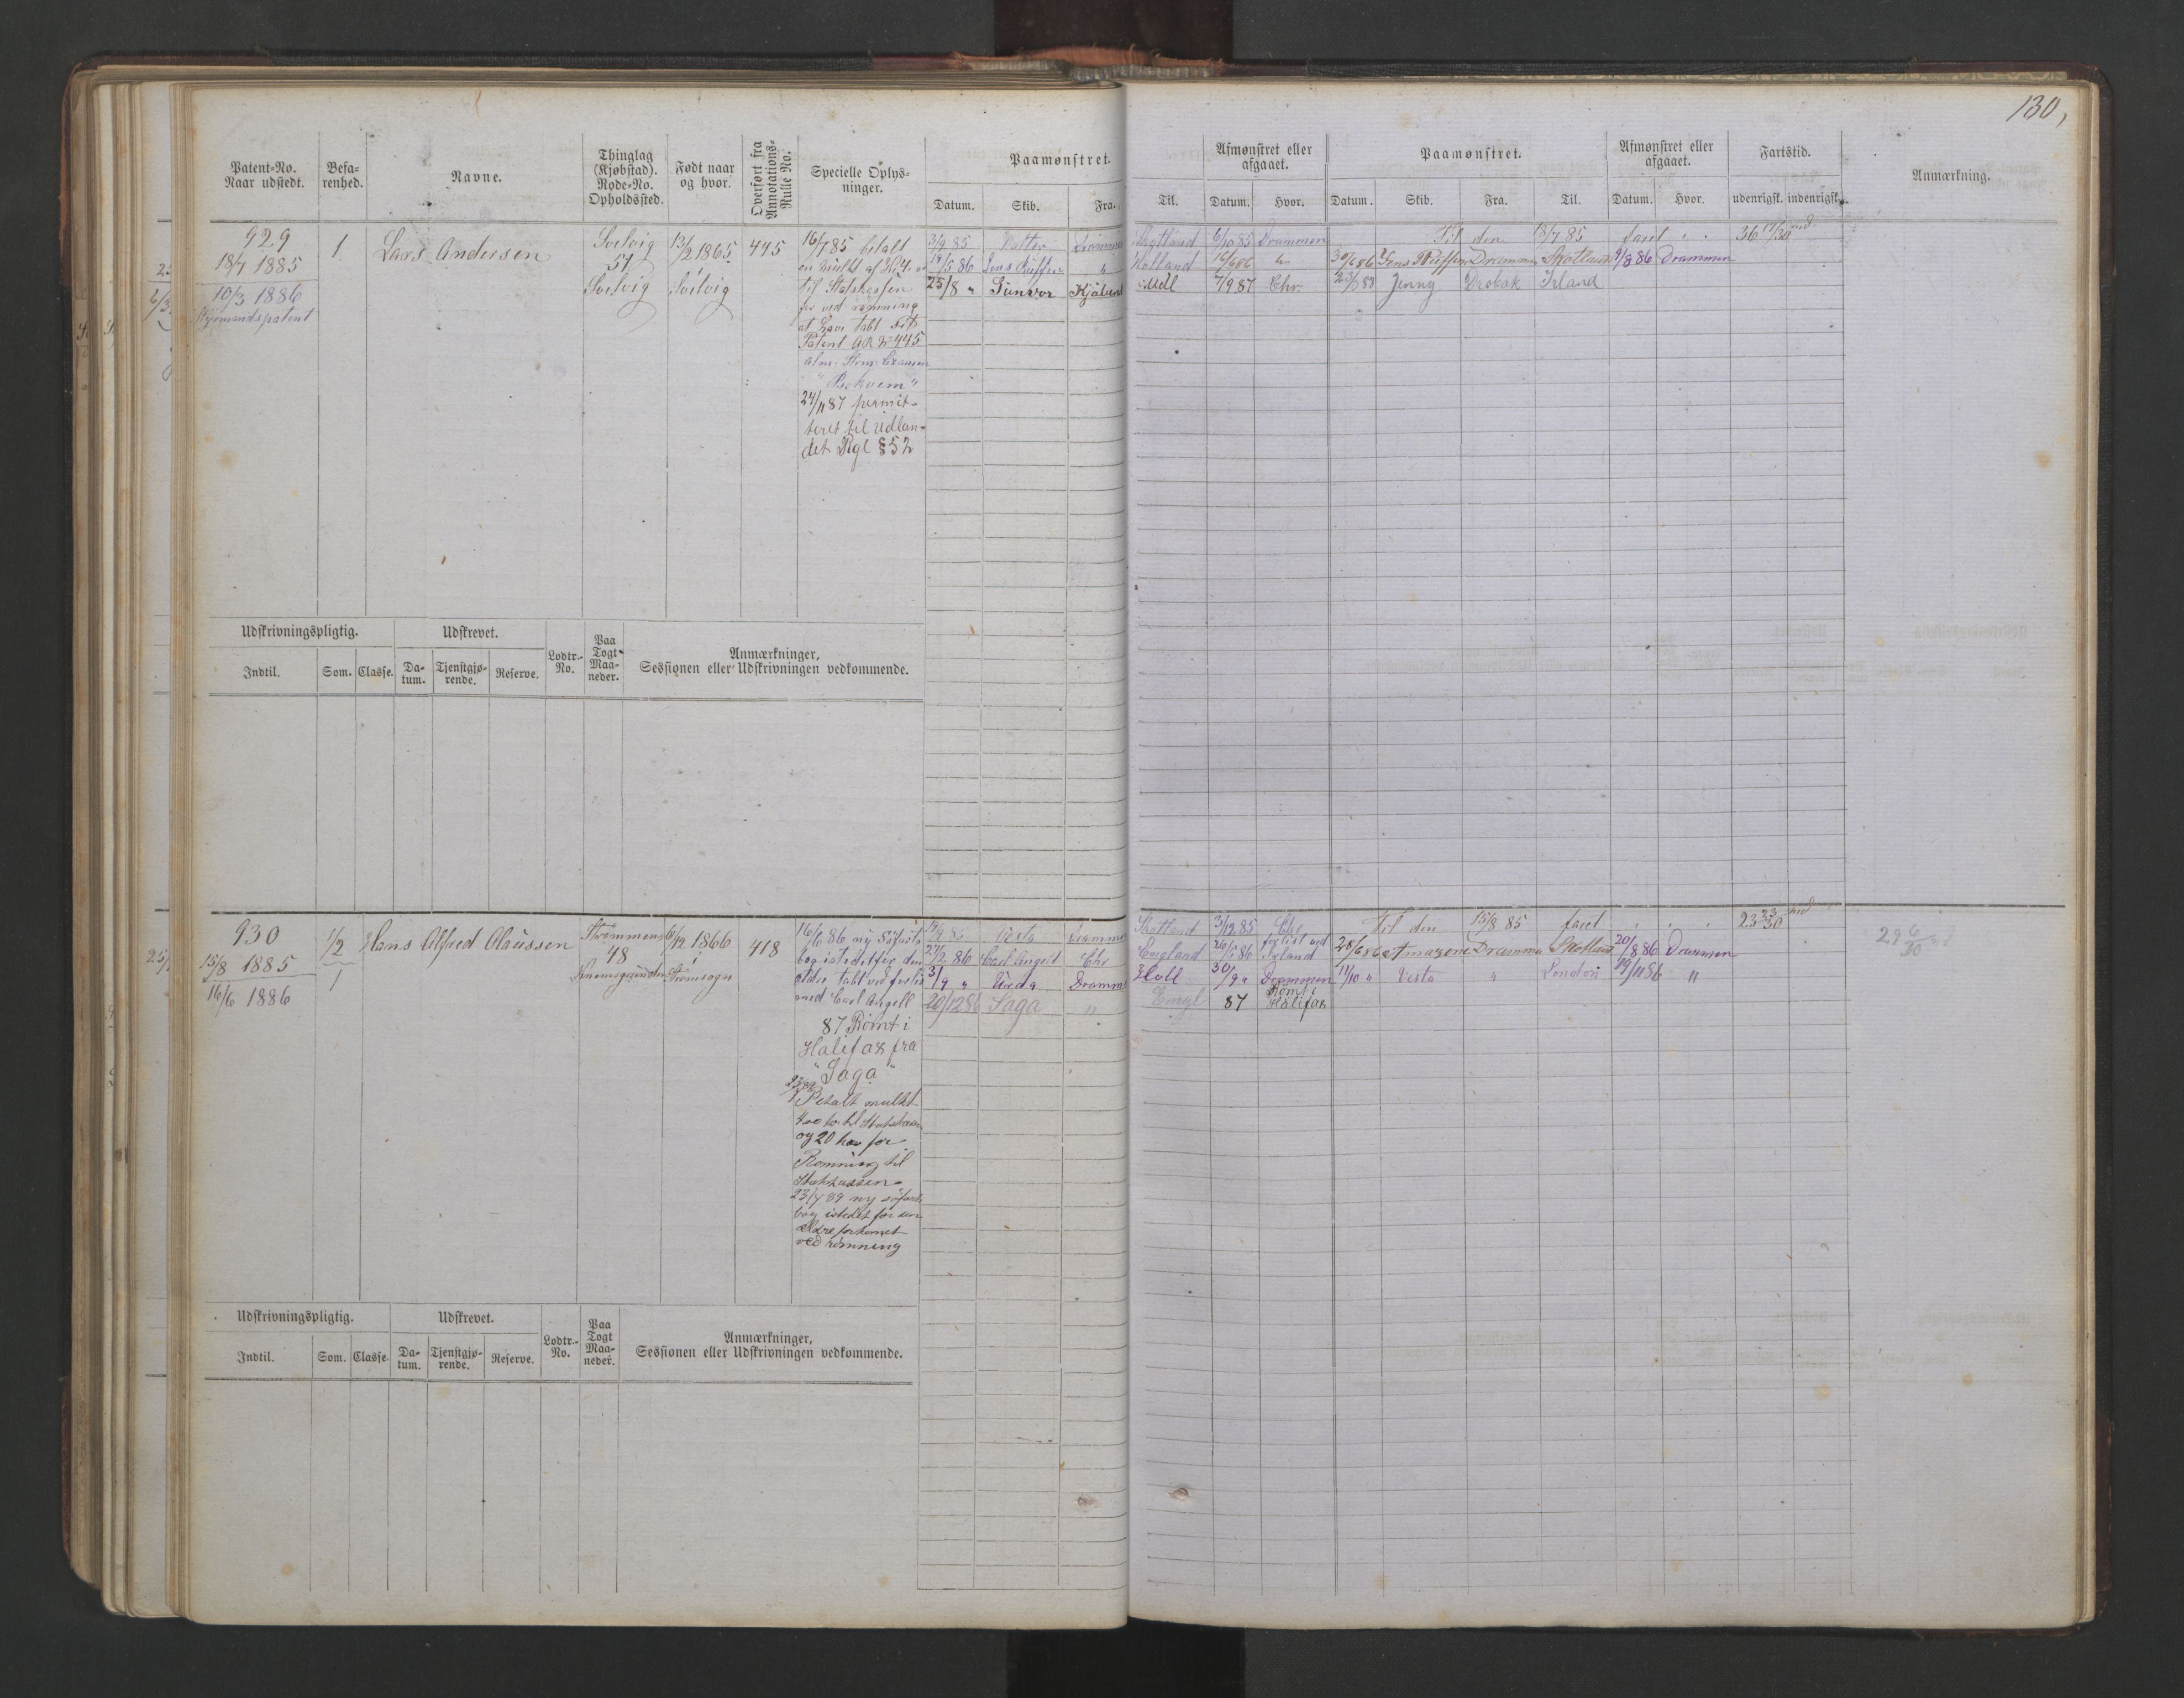 130,
Patent-No. Naar udstedt.
Befa-renhed.
Navne.
Thinglag (Kjøbstad). Rode-No. Opholdssted.
Født naar og hvor.
Overført fra Annotations-Rulle No.
Specielle Oplys-ninger.
Paamønstret.
Datum. Skib. Fra. Til.
Afmønstret eller afgaaet.
Datum. Hvor.
Paamønstret.
Datum. Skib. Fra. Til.
Afmønstret eller afgaaet.
Datum. Hvor.
Fartstid.
udenrigsk. indenrigsk.
Anmærkning.
929
18/7 1885
10/3 1886
Styrmandspatent
1
Lars Andersen
Svelvig
51
Svelvig
13/2 1865
Svelvig
445
16/7 85 betalt
en mulkt af Kr. 4.
til Statskassen
for ved rømning
at have tabt sit
Patent A R No 445
alm. Strm. Examen
"Bekvem"
24/11 87 permit-
teret til Udlan-
det Rgl § 52
3/9 85 Drammen Skotland 6/10 85 Drammen
Til den 18/7 85 faret " " 36 11/30 md
14/5 86 Holland 16/6 86 "
30/6 86 Drammen Skotland 9/8 86 Drammen
25/8 " Gunvor Hull 7/9 87 Chr.
23/3 88 Jenny Drøbak Irland
Udskrivningspligtig.
Udskrevet.
Indtil. Som. Classe. Da-tum. Tjenstgjø-rende. Reserve.
Lodtr.-No.
Paa Togt Maa-neder.
Anmærkninger,
Sessionen eller Udskrivningen vedkommende.
930
15/8 1885
16/6 1886
1/2
1
Hans Alfred Olaussen
Strømmen
48
6/12 1866
Strømsogn
418
16/6 86 ny Søfarts
bog istedetfor den
ældre tabt ved forlis
med Carl Angell
87 Rømt i
Halifax fra
"Saga"
23/7 89
Betalt mulkt
4.00 kr til Statskassen
og 20 kr for
Rømning til
Statskassen
23/7 89 ny søfarts
bog istedet for den
Ældre forkomet
ved rømning
Vesta Drammen Skotland 3/12 85 Chr
Til den 15/8 85 faret " " " 23 23/30 md
29 6/30
Carl Angell Chr England 26/ 86 forlist ved Irland
28/6 86 Amazone Drammen Skotland 20/8 86 Drammen
3/9 " Urda Dramm Holl 30/9 " Drammen
11/10 " Vesta " London 19/11 86 "
20/12 86 Saga " Engl 87 Rømt i Halifax
Udskrivningspligtig.
Udskrevet.
Indtil. Som. Classe. Da-tum. Tjenstgjø-rende. Reserve.
Lodtr.-No.
Paa Togt Maa-neder.
Anmærkninger,
Sessionen eller Udskrivningen vedkommende.